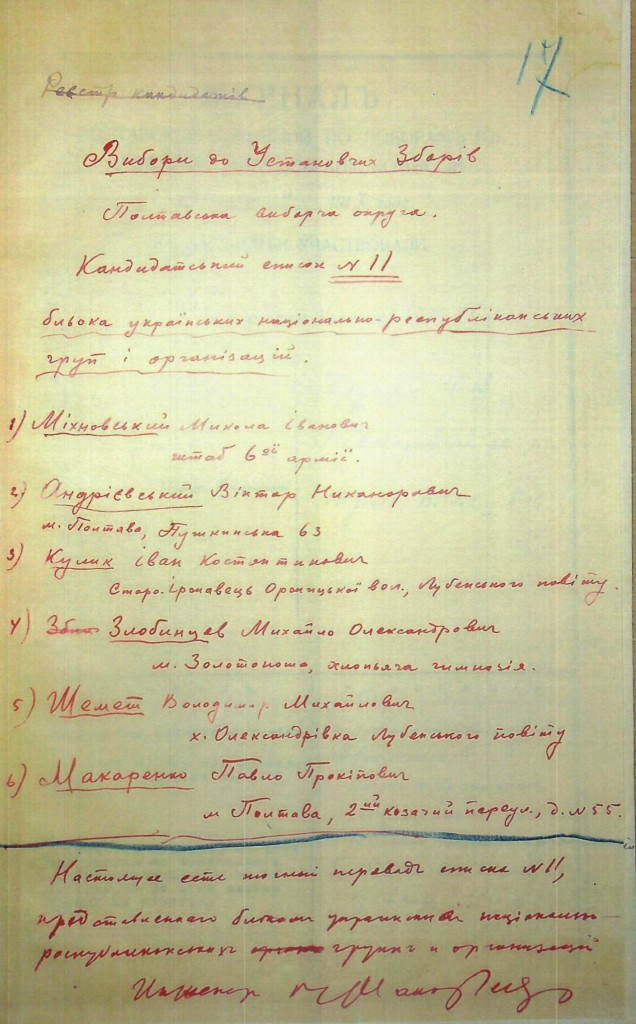 17
Реєстр кандидатів
Вибори до Установчих Зборів
Полтавська виборча округа.
Кандидатський список N 11
бльока українських національно-республіканських
груп і організацій.
1) Міхновський Микола Іванович
штаб 6ої армії.
2) Андрієвський Віктор Никанорович
м. Полтава, Пушкинська 63
3) Кулик Іван Костянтинович
Старо-Іржавець Оржицької вол., Лубенського повіту.
4) Злобинцев Михайло Олександрович
м. Золотоноша, хлопьяча гимназія.
5) Шемет Володимир Михайлович
х. Олександрівка Лубенського повіту
6) Макаренко Павло Прокіпович
м Полтава, 2ий козачий переул., д. N 55.
Настоящее есть переводъ списка N 11,
представленнаго блокомъ украинскихъ національно-
республиканскихъ группъ и организацій
Инженер